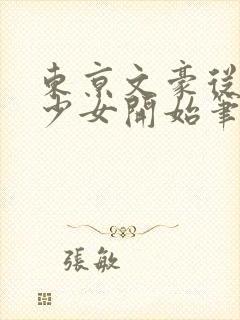 東京文豪從
少女開始筆
張敏